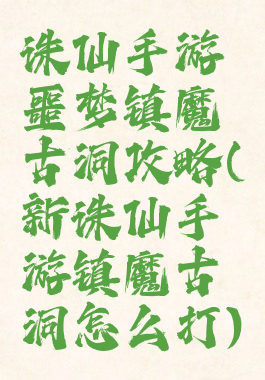 诛仙手游
噩梦镇魔
古洞攻略(
新诛仙手
游镇魔古
洞怎么打)